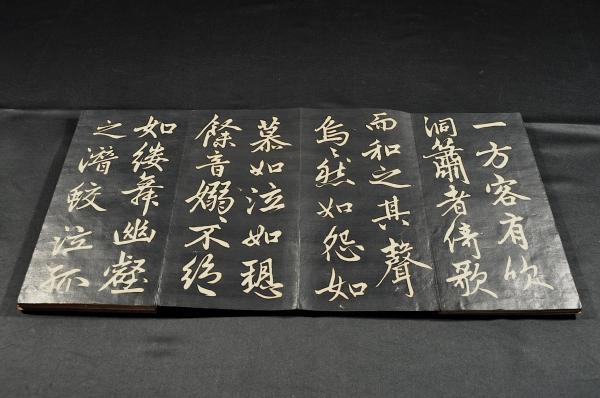 一方客有吹
洞簫者倚歌
而和之其聲
烏〻然如怨如
慕如泣如
餘音嫋〻不絕
如縷舞幽壑
之潛蛟泣孤